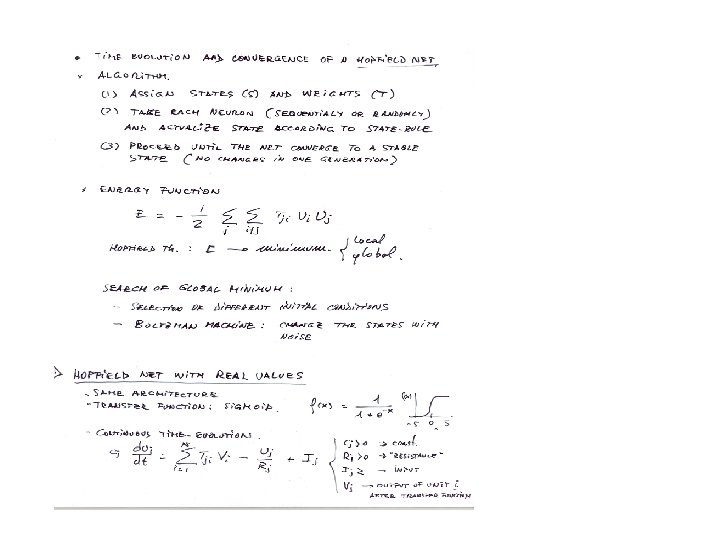 • TIME EVOLUTION AND CONVERGENCE OF A HOPFIELD NET
* ALGORITHM.
(1) ASSIGN STATES (S) AND WEIGHTS (T)
(2) TAKE EACH NEURON (SEQUENTIALY OR RANDOMLY)
AND ACTUALIZE STATE ACCORDING TO STATE-RULE
(3) PROCEED UNTIL THE NET CONVERGE TO A STABLE
STATE (NO CHANGES IN ONE GENERATION)
* ENERGY FUNCTION
E = - 1/2 Σ_j Σ_{i≠j} T_ji U_i U_j
HOPFIELD TH. : E → minimum. { local
global.
SEARCH OF GLOBAL MINIMUM :
- SELECTION OF DIFFERENT INITIAL CONDITIONS
- BOLTZMAN MACHINE : CHANGE THE STATES WITH
NOISE
> HOPFIELD NET WITH REAL VALUES
- SAME ARCHITECTURE
- TRANSFER FUNCTION : SIGMOID. f(x) = 1 / (1 + e^-x) f(x) -5 0 5
- CONTINUOUS TIME-EVOLUTION.
C_j dU_j/dt = Σ_{i=1}^N T_ji V_i - U_j/R_j + I_j
C_j > 0 → const.
R_j > 0 → "RESISTANCE"
I_j → INPUT
V_j → OUTPUT OF UNIT j
AFTER TRANSFER FUNCTION